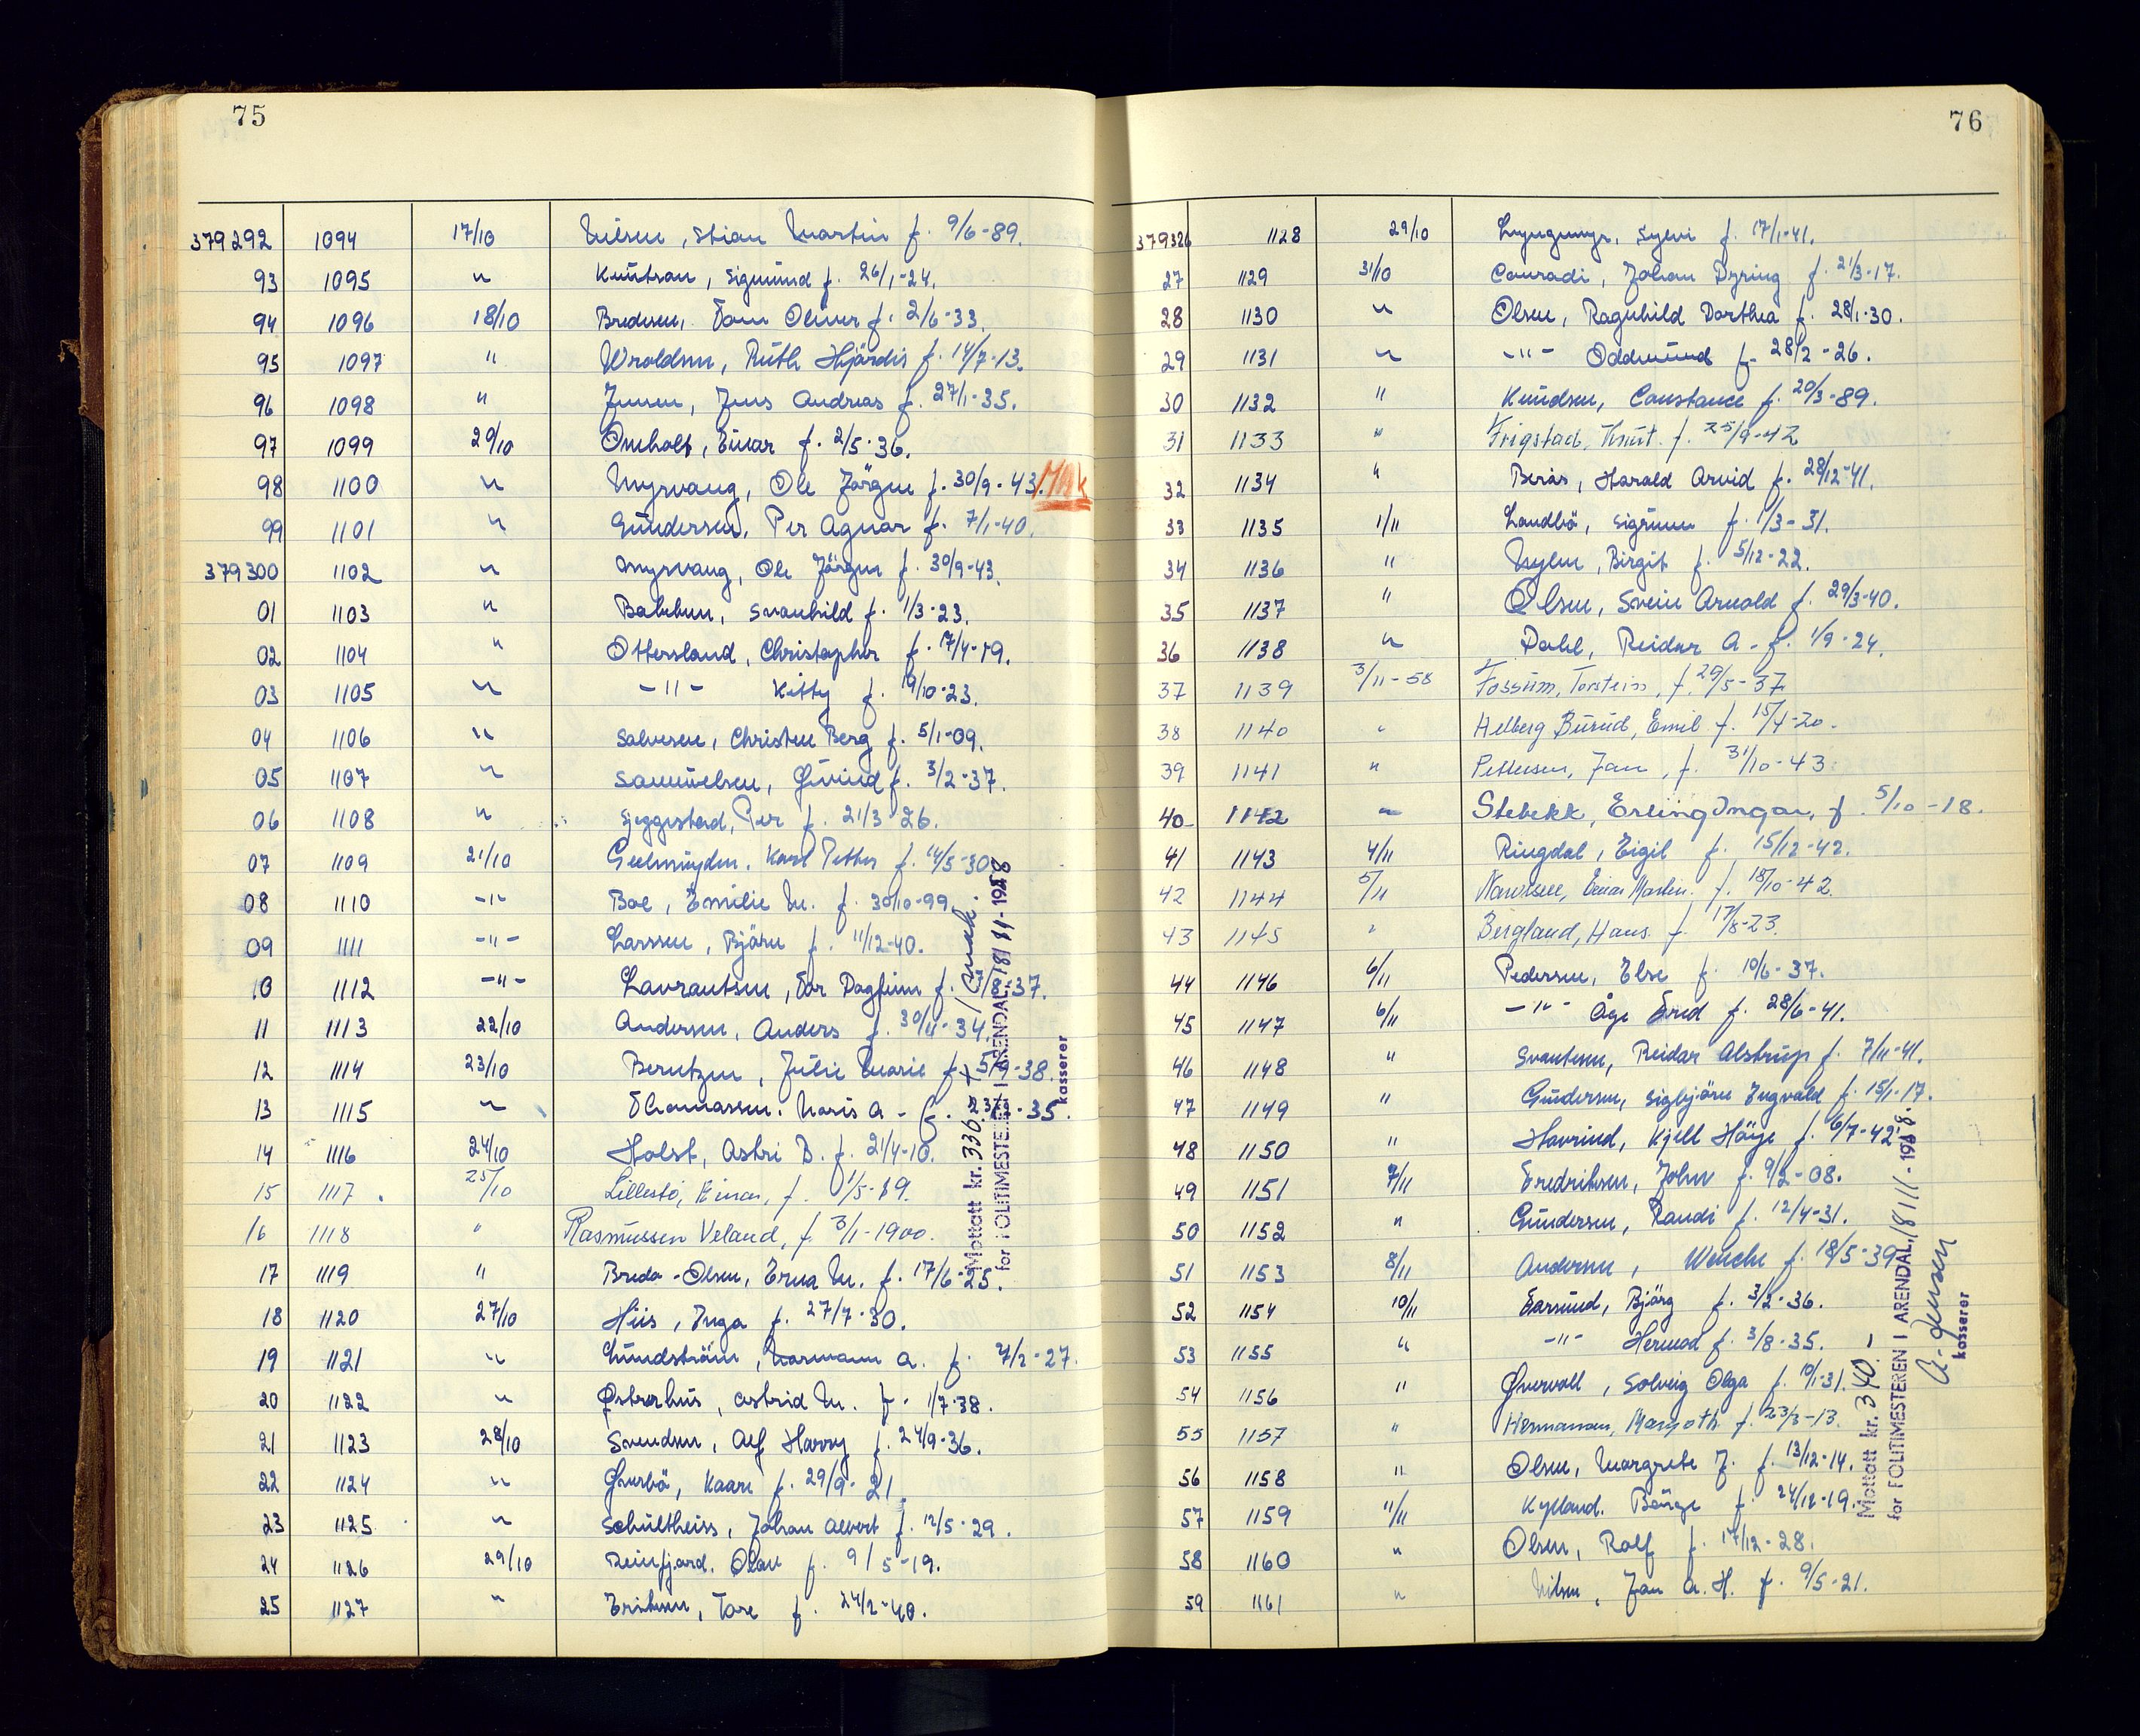 75
379292 1094 17/10 Nilsen, Stian Martin f. 9/6-89.
93 1095 " Knutsen, Sigmund f. 26/1-24.
94 1096 18/10 Bredesen, Tom Oliver f. 2/6-33.
95 1097 " Wroldsen, Ruth Hjördis f. 14/7-13.
96 1098 " Jensen, Jens Andreas f. 27/1-35.
97 1099 20/10 Omholt, Einar f. 2/5-36.
98 1100 " Myrvang, Ole Jörgen f. 30/9-43. Mak
99 1101 " Gundersen, Per Agnar f. 7/1-40.
379300 1102 " Myrvang, Ole Jörgen f. 30/9-43.
01 1103 " Svanhild f. 1/3-23.
02 1104 " Ottersland, Christopher f. 17/4-19.
03 1105 " -"- Kitty f. 19/10-23.
04 1106 " Salvesen, Christen Berg f. 5/1-09.
05 1107 " Samuelsen, Øivind f. 3/2-37.
06 1108 " Seggestad, Per f. 21/3-26.
07 1109 21/10 Geelmuyden, Karl Petter f. 14/5-30
08 1110 -"- Boe, Emilie M. f. 30/10-99.
09 1111 -"- Larssen, Björn f. 11/12-40.
10 1112 -"- Lavrantsen, Tor Dagfinn f. /8-37.
11 1113 22/10 Andersen, Anders f. 30/11-34.
12 1114 23/10 Berntzen, Julie Marie f. 5/9-38.
13 1115 " Thomassen, Maris A. f. -35.
14 1116 24/10 Holst, Astri B. f. 21/4-10.
15 1117 25/10 Lillestö, Einar, f. 1/5-19.
16 1118 " Rasmussen Veland, f. 3/1-1900.
17 1119 " Breda-Olsen, Erna M. f. 17/6-25.
18 1120 27/10 Hiis, Inga f. 27/7-30.
19 1121 " Lundström, Normann A. f. 7/2-27.
20 1122 " Østerhus, Astrid M. f. 1/7-38.
21 1123 28/10 Svendsen, Alf Harry f. 24/9-36.
22 1124 " Øverbö, Kaare f. 29/9-21.
23 1125 " Schultheiss, Johan Albert f. 12/5-29.
24 1126 29/10 Reinfjord, Olav f. 9/5-19.
25 1127 " Eriksen, Tore f. 24/2-40.
Mottatt kr. 336.-
for POLITIMESTEREN I ARENDAL, 8/11-1958
kasserer
76
379326 1128 29/10 Lyngmyr, Sylvi f. 17/1-41.
27 1129 31/10 Conradi, Johan Dyring f. 21/3-17.
28 1130 " Olsen, Ragnhild Dorthea f. 28/1-30.
29 1131 " -"- Oddmund f. 28/2-26.
30 1132 " Knudsen, Constance f. 20/3-89.
31 1133 " Frigstad, Knut. f. 25/9-42
32 1134 " Berås, Harald Arvid f. 28/12-41.
33 1135 1/11 Landbö, Sigrunn f. 1/3-31.
34 1136 " Nylen, Birgit f. 5/12-22.
35 1137 " Olsen, Svein Arnold f. 29/3-40.
36 1138 " Dahl, Reidar A. f. 1/9-24.
37 1139 3/11-58 Fossum, Torstein, f. 29/5-37
38 1140 " Helberg Burud, Emil f. 15/4-20.
39 1141 " Pettersen, Jan, f. 31/10-43
40 1142 " Stebekk, Erling Ingar, f. 5/10-18.
41 1143 4/11 Ringdal, Eigil f. 15/12-42.
42 1144 5/11 Einar Martin. f. 18/10-42.
43 1145 " Bergland, Hans f. 17/8-23.
44 1146 6/11 Pedersen, Else f. 10/6-37.
45 1147 6/11 -"- Åge Fred f. 28/6-41.
46 1148 " Svantesen, Reidar Alstrup f. 7/11-41.
47 1149 " Gundersen, Sigbjörn Ingvald f. 15/1-17.
48 1150 " Havrind, Kjell Höye f. 6/7-42.
49 1151 7/11 Fredriksen, John f. 9/2-08.
50 1152 " Gundersen, Randi f. 12/4-31.
51 1153 8/11 Andersen, Wenche f. 18/5-39
52 1154 10/11 Farsund, Björg f. 3/2-36.
53 1155 " -"- Hermod f. 3/8-35.
54 1156 " Øvervoll, Solveig Olga f. 10/1-31.
55 1157 " Hermansen, Margoth f. 23/3-13.
56 1158 " Olsen, Margrete J. f. 13/12-14.
57 1159 11/11 Kylland, Börge f. 24/12-19.
58 1160 " Olsen, Rolf f. 17/12-28.
59 1161 " Nilsen, Jan A. H. f. 9/5-21.
Mottatt kr. 340.-
for POLITIMESTEREN I ARENDAL, 18/11-1958.
A. Jensen
kasserer